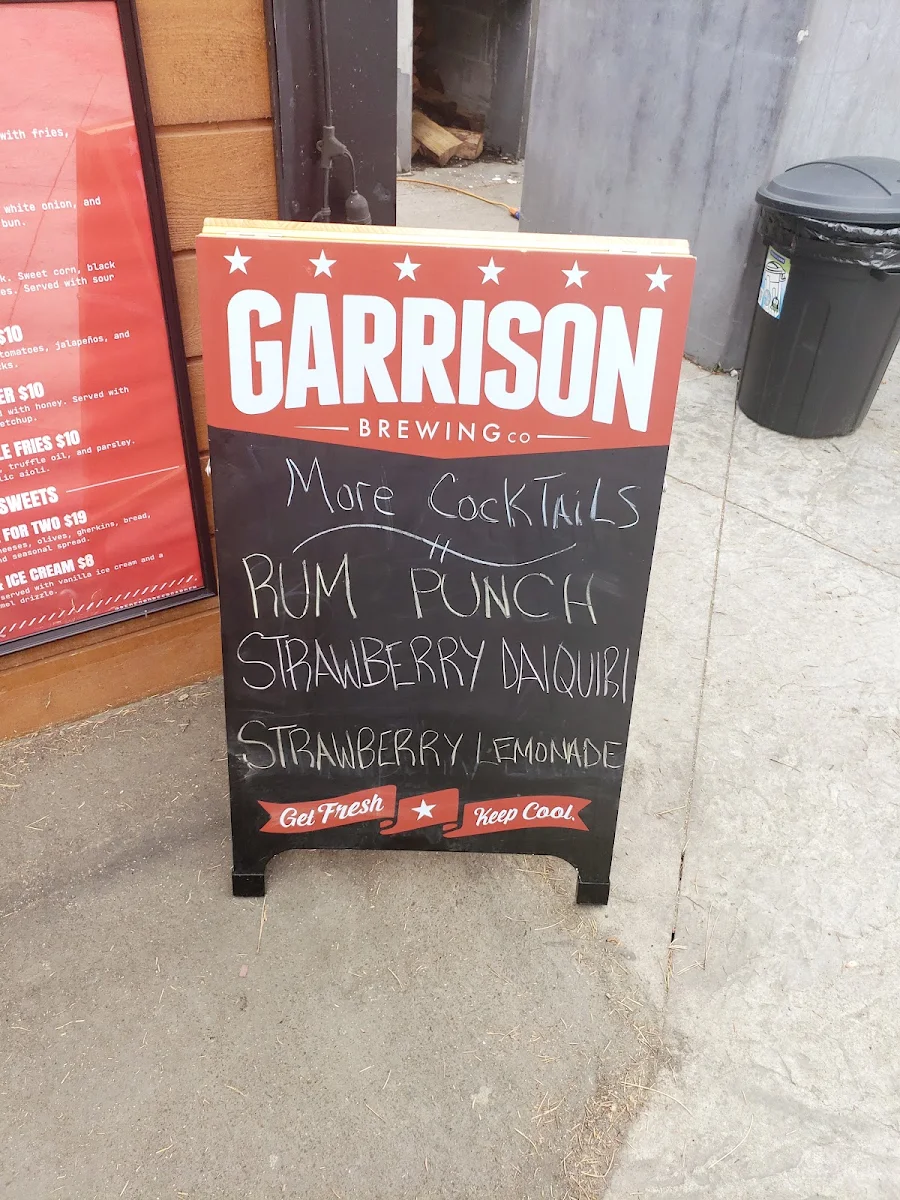 with fries,
white onion, and
bun.
Sweet corn, black
Served with sour
$10
tomatoes, jalapeños, and
$10
with honey. Served with
FRIES $10
truffle oil, and parsley.
aioli.
SWEETS
FOR TWO $19
olives, gherkins, bread,
and seasonal spread.
ICE CREAM $8
served with vanilla ice cream and a
drizzle.
GARRISON
BREWING CO
More CockTaiLs
RUM PUNCH
STRAWBERRY DAIQUIRI
STRAWBERRY LEMONADE
Get Fresh Keep Cool.